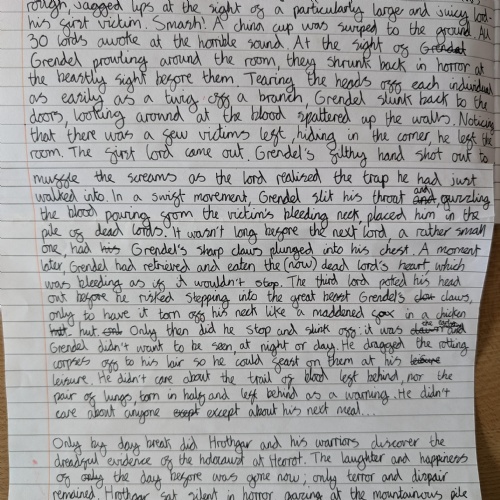 rough, jagged lips at the sight of a particularly large and juicy lord
his first victim. Smash! A china cup was swiped to the ground. All
30 lords awoke at the horrible sound. At the sight of Grendel
Grendel prowling around the room, they shrunk back in horror at
the beastly sight before them. Tearing the heads off each individual
as easily as a twig off a branch, Grendel slunk back to the
doors, looking around at the blood spattered up the walls. Noticing
that there was a few victims left, hiding in the corner, he left the
room. The first lord came out. Grendel's filthy hand shot out to
muffle the screams as the lord realised the trap he had just
walked into. In a swift movement, Grendel slit his throat and and, guzzling
the blood pouring from the victim's bleeding neck, placed him in the
pile of dead lords. It wasn't long before the next lord, a rather small
one, had his Grendel's sharp claws plunged into his chest. A moment
later, Grendel had retrieved and eaten the (now) dead lord's heart, which
was bleeding as if it wouldn't stop. The third lord poted his head
out before he risked stepping into the great beast Grendel's claws,
only to have it torn off his neck like a maddened fox in a chicken
hut. Only then did he stop and slink off: it was the and
Grendel didn't want to be seen, at night or day. He dragged the rotting
corpses off to his lair so he could feast on them at his leisure
leisure. He didn't care about the trail of blood left behind, nor the
pair of lungs, torn in half and left behind as a warning. He didn't
care about anyone except except about his next meal...
Only by day break did Hrothgar and his warriors discover the
dreadful evidence of the holocaust at Heorot. The laughter and happiness
of only the day before was gone now; only terror and dispair
remained. Hrothgar sat silent in horror gazing at the mountainous pile